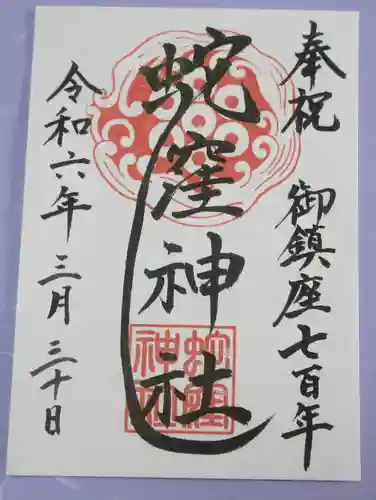 奉祝 御鎮座七百年
蛇窪神社
蛇窪神社
令和六年三月三十日